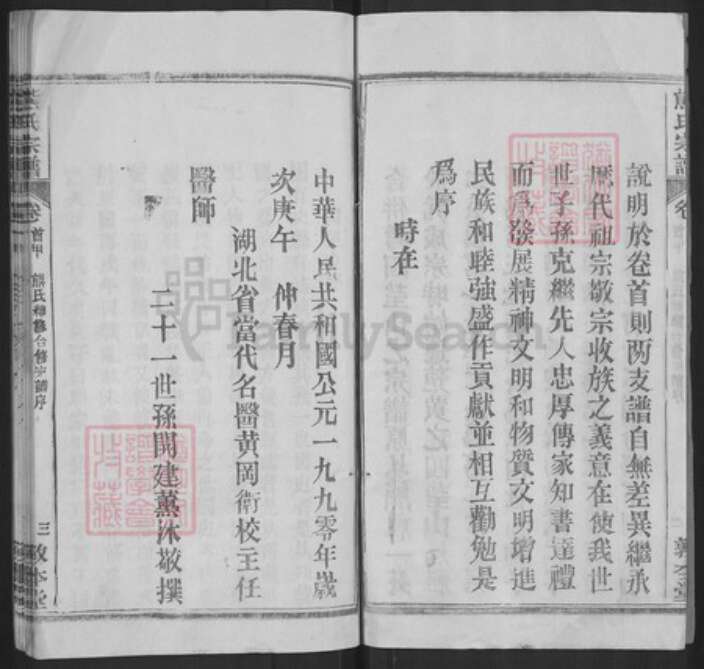 說明於卷首則两支譜自無差異繼承
歷代祖宗敬宗收族之義意在使我世
世子孫克繼先人忠厚傳家知書達禮
而爲發展精神文明和物質文明增進
民族和睦強盛作貢獻並相互勸勉是
爲序
時在
中華人民共和國公元一九九零年歲
次庚午 仲春月
湖北省當代名醫黄岡衛校主任
醫師
二十一世孫開建薰沐敬撰
熊氏宗譜
卷首
熊氏 合修 譜序
三
敦本堂
熊氏宗譜
卷
敦本堂
FamilySearch